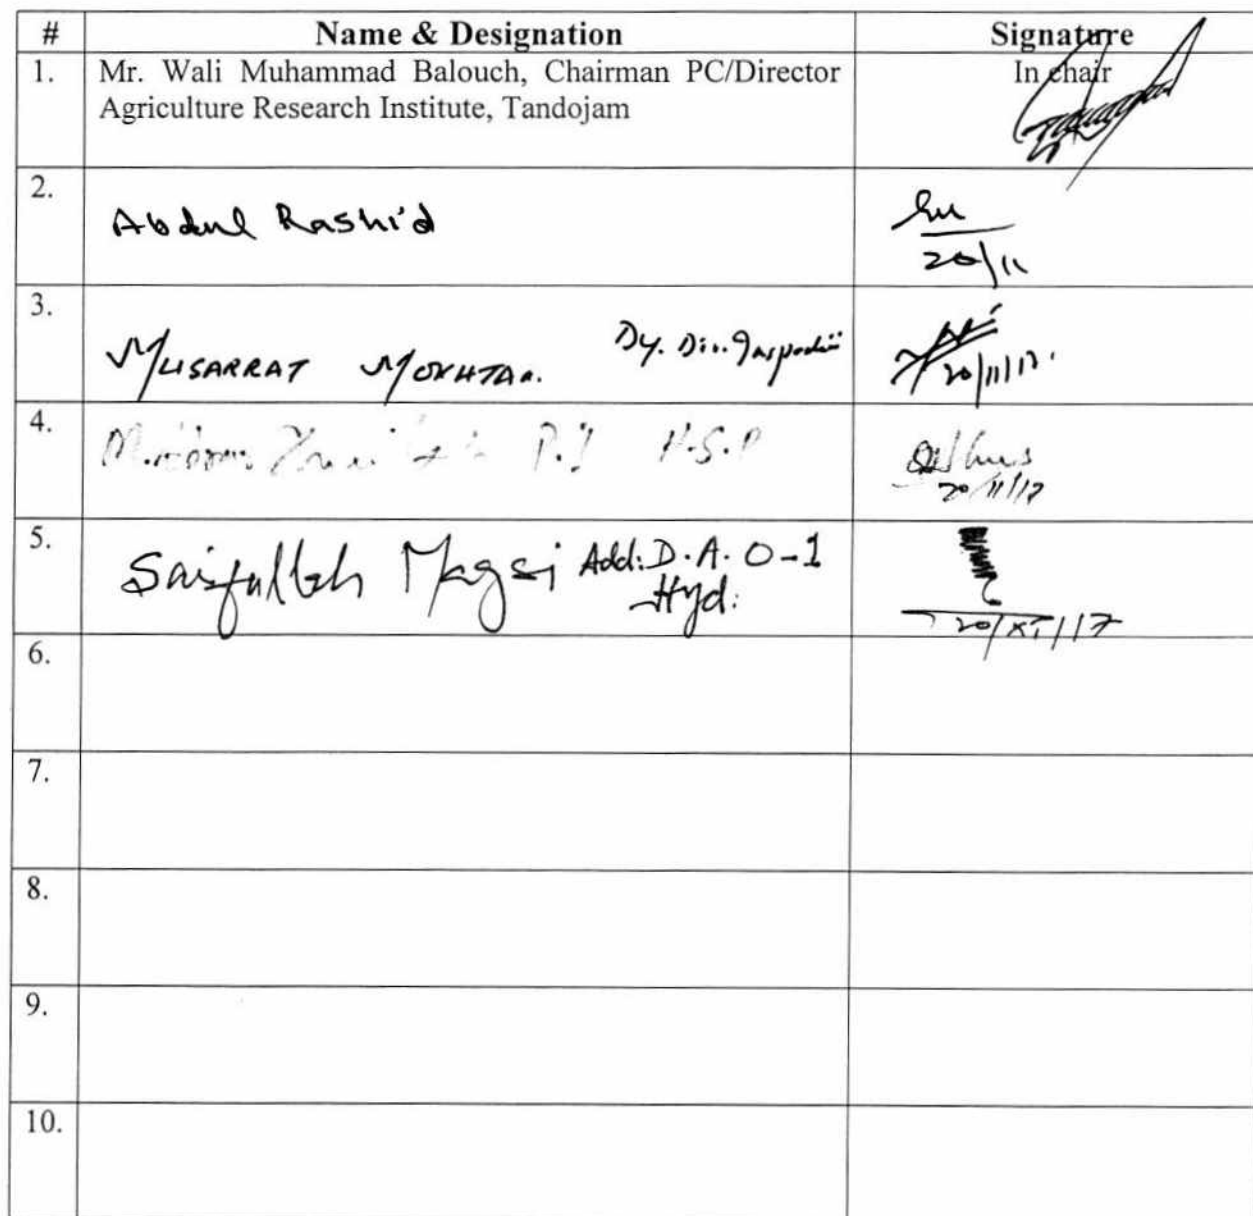 # Name & Designation Signature
1. Mr. Wali Muhammad Balouch, Chairman PC/Director In chair
Agriculture Research Institute, Tandojam
2. Abdul Rashid
20/11
3. MUSARRAT MOKHTAR. Dy. Dir.
20/11/17.
4. P.I H.S.P
20/11/17
5. Saifullah Magsi Add: D.A.O-1
Hyd:
20/XI/17
6.
7.
8.
9.
10.